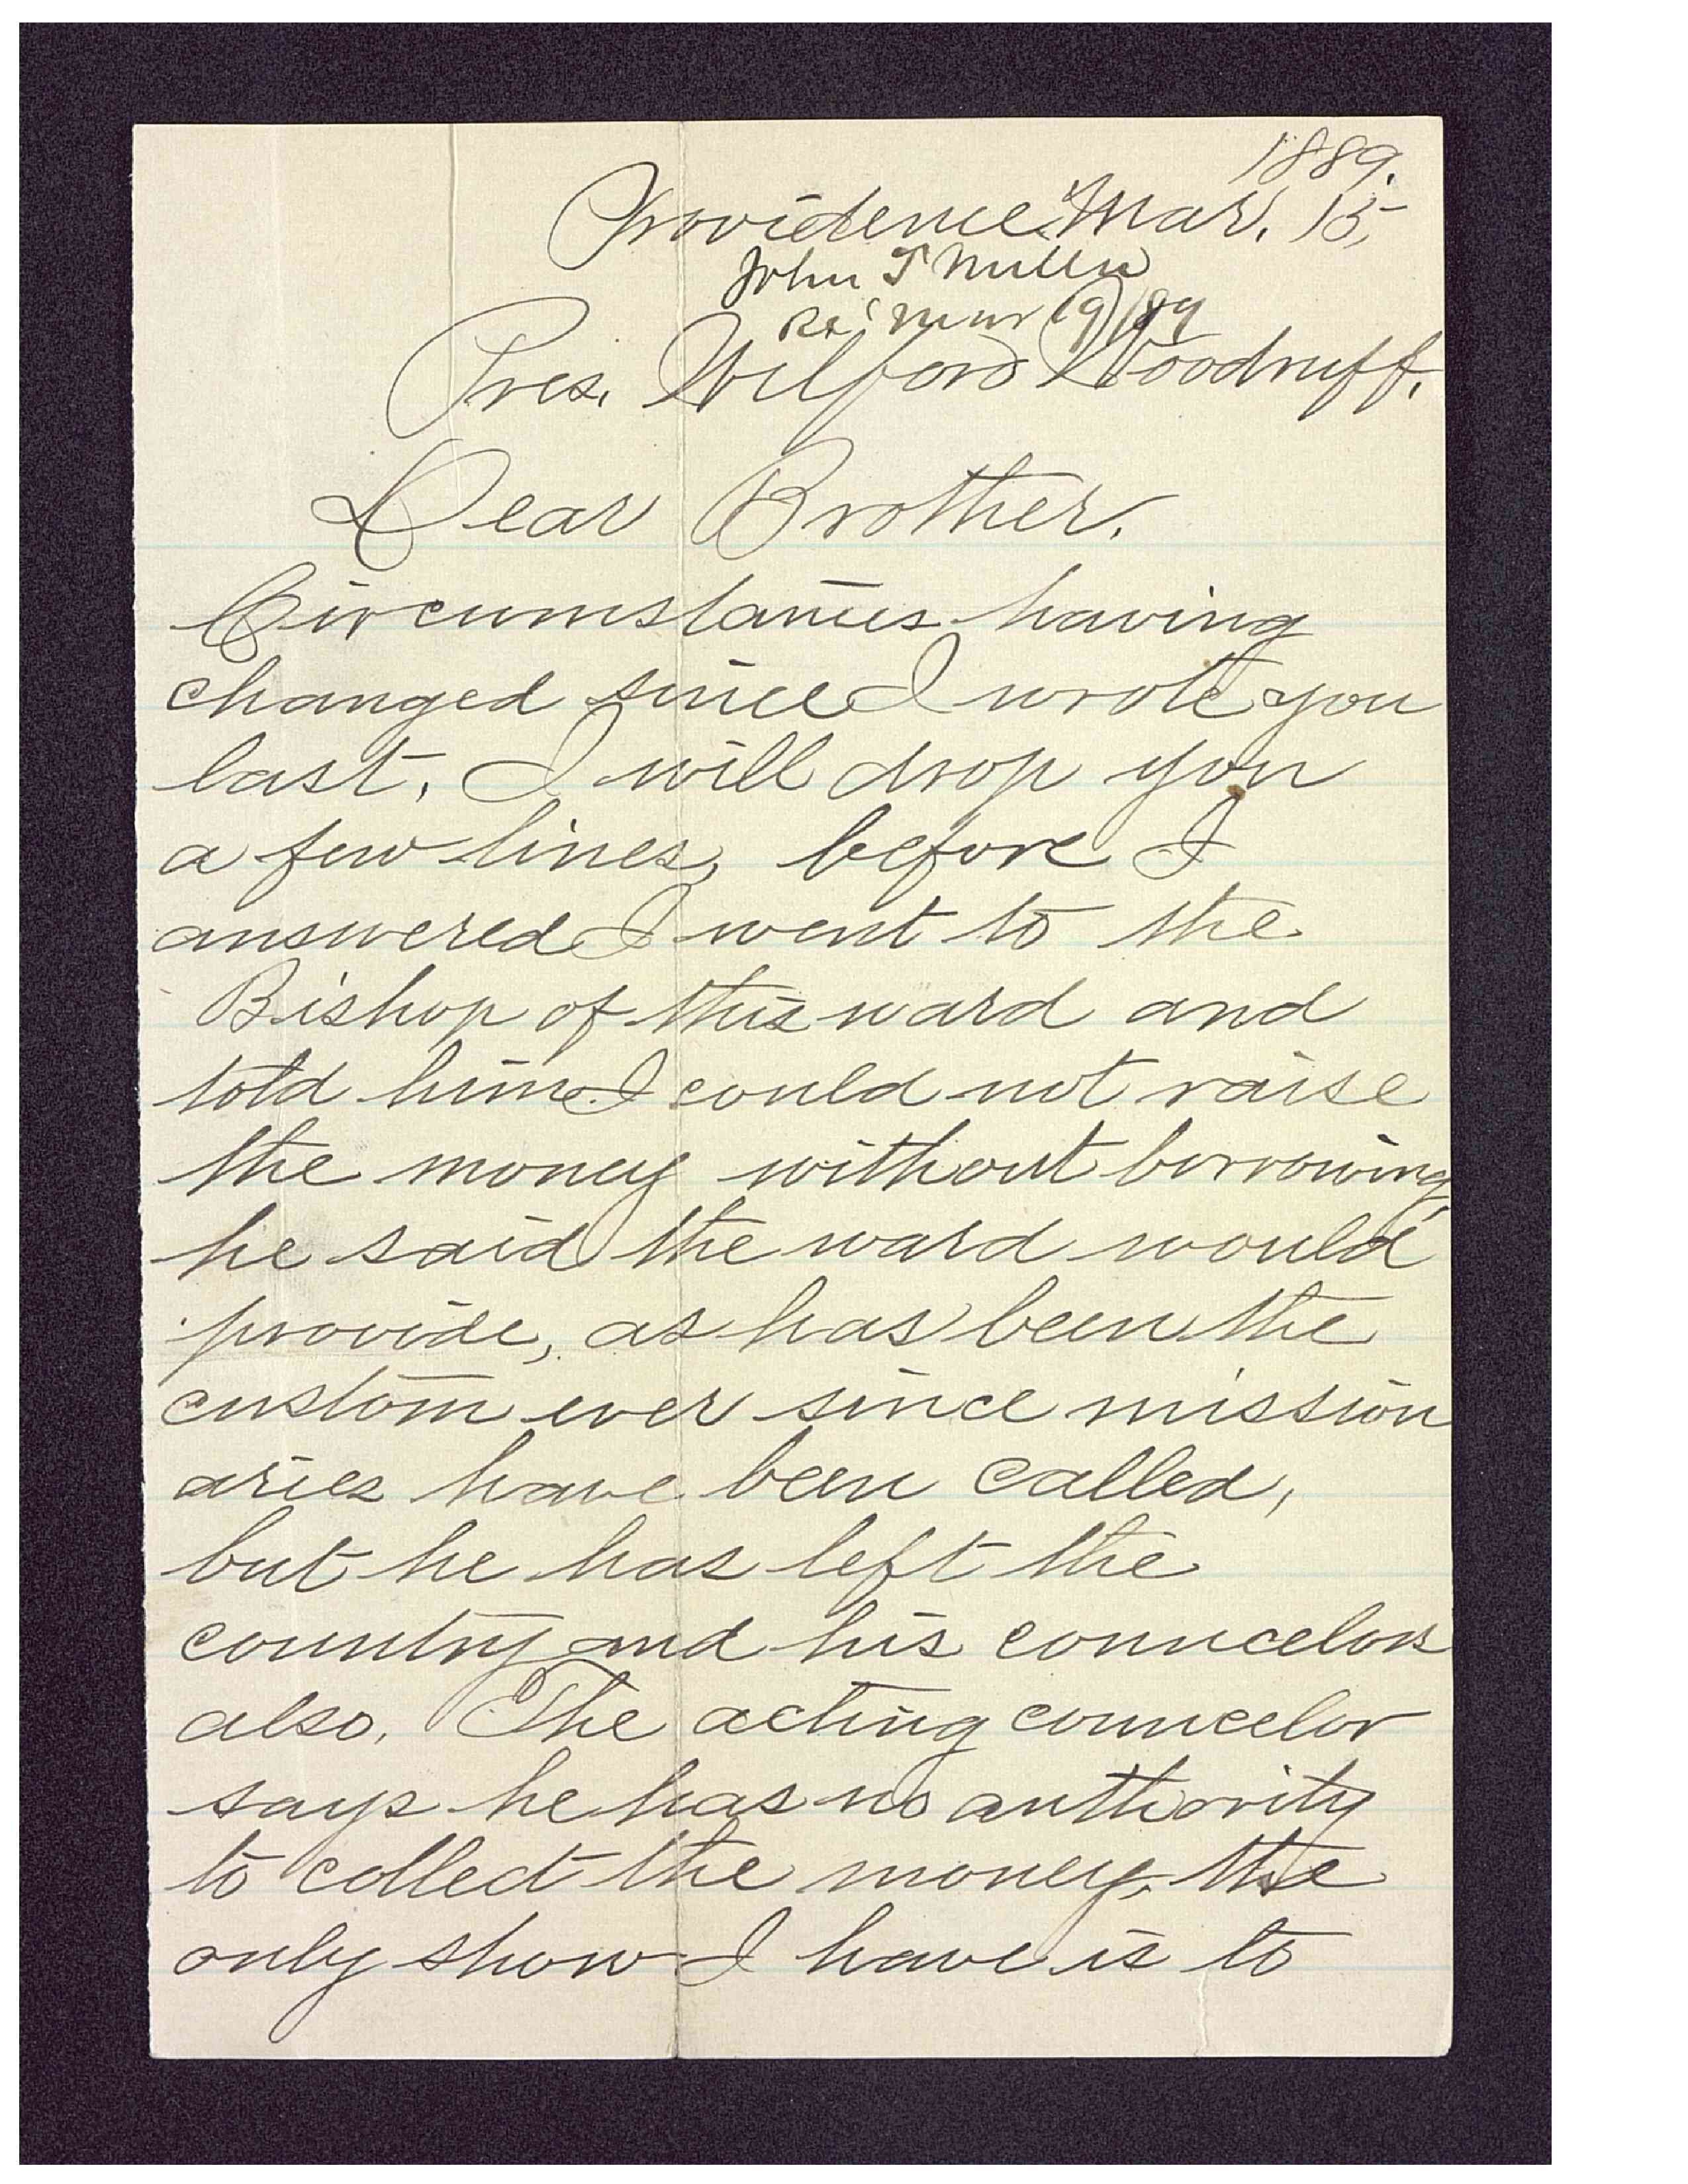 1889.
Providence Mar. 15,
John T Miller
Rec' Mar 19/89
Pres. Wilford Woodruff.
Dear Brother.
Circumstances having
changed since I wrote you
last, I will drop you
a few lines, before I
answered I went to the
Bishop of this ward and
told him I could not raise
the money without borrowing,
he said the ward would
provide, as has been the
custom ever since mission
aries have been called,
but he has left the
country and his councelors
also. The acting councelor
says he has no authority
to collect the money, the
only show I have is to